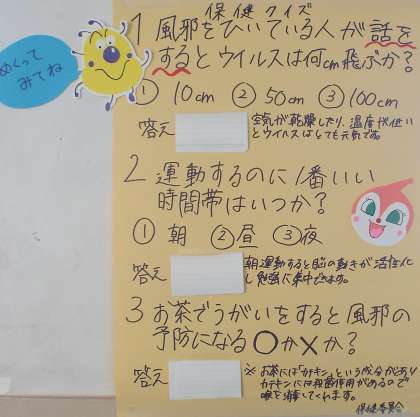 保健クイズ
めくって
みてね
1 風邪をひいている人が話を
するとウイルスは何cm飛ぶか?
① 10cm ② 50cm ③ 100cm
答え
空気が乾燥したり、温度が低い
とウイルスはとても元気です。
2 運動するのに1番いい
時間帯はいつか?
① 朝 ②昼 ③夜
答え
朝運動すると脳の動きが活性化
し勉強に集中できます。
3 お茶でうがいをすると風邪の
予防になる〇か×か?
答え
※ お茶には「カテキン」という成分があり
カテキンには殺菌作用があるので
喉を消毒してくれます。
保健委員会